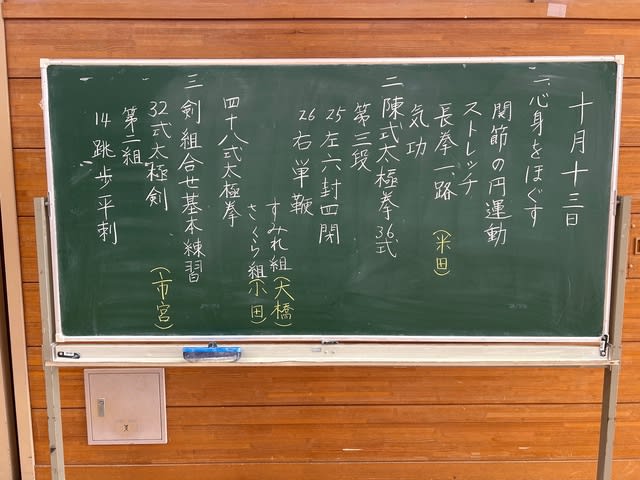 十月十三日
一、心身をほぐす
関節の円運動
ストレッチ
長拳一路
(米田)
気功
二 陳式太極拳36式
第三段
25 左六封四閉
26 右単鞭
すみれ組(大橋)
さくら組(小田)
四十八式太極拳
三 剣組合せ基本練習
32式太極剣
(市宮)
第二組
14 跳歩平刺